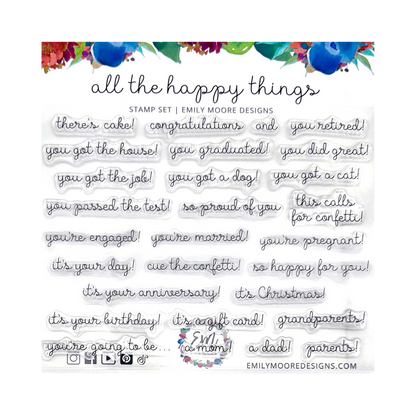 all the happy things
STAMP SET | EMILY MOORE DESIGNS
there's cake! congratulations and you retired!
you got the house! you graduated! you did great!
you got the job! you got a dog! you got a cat!
you passed the test! so proud of you this calls
for confetti!
you're engaged! you're married! you're pregnant!
it's your day! cue the confetti! so happy for you!
it's your anniversary! it's Christmas!
it's your birthday! it's a gift card! grandparents!
you're going to be... a mom! a dad! parents!
EM
EMILYMOOREDESIGNS.COM